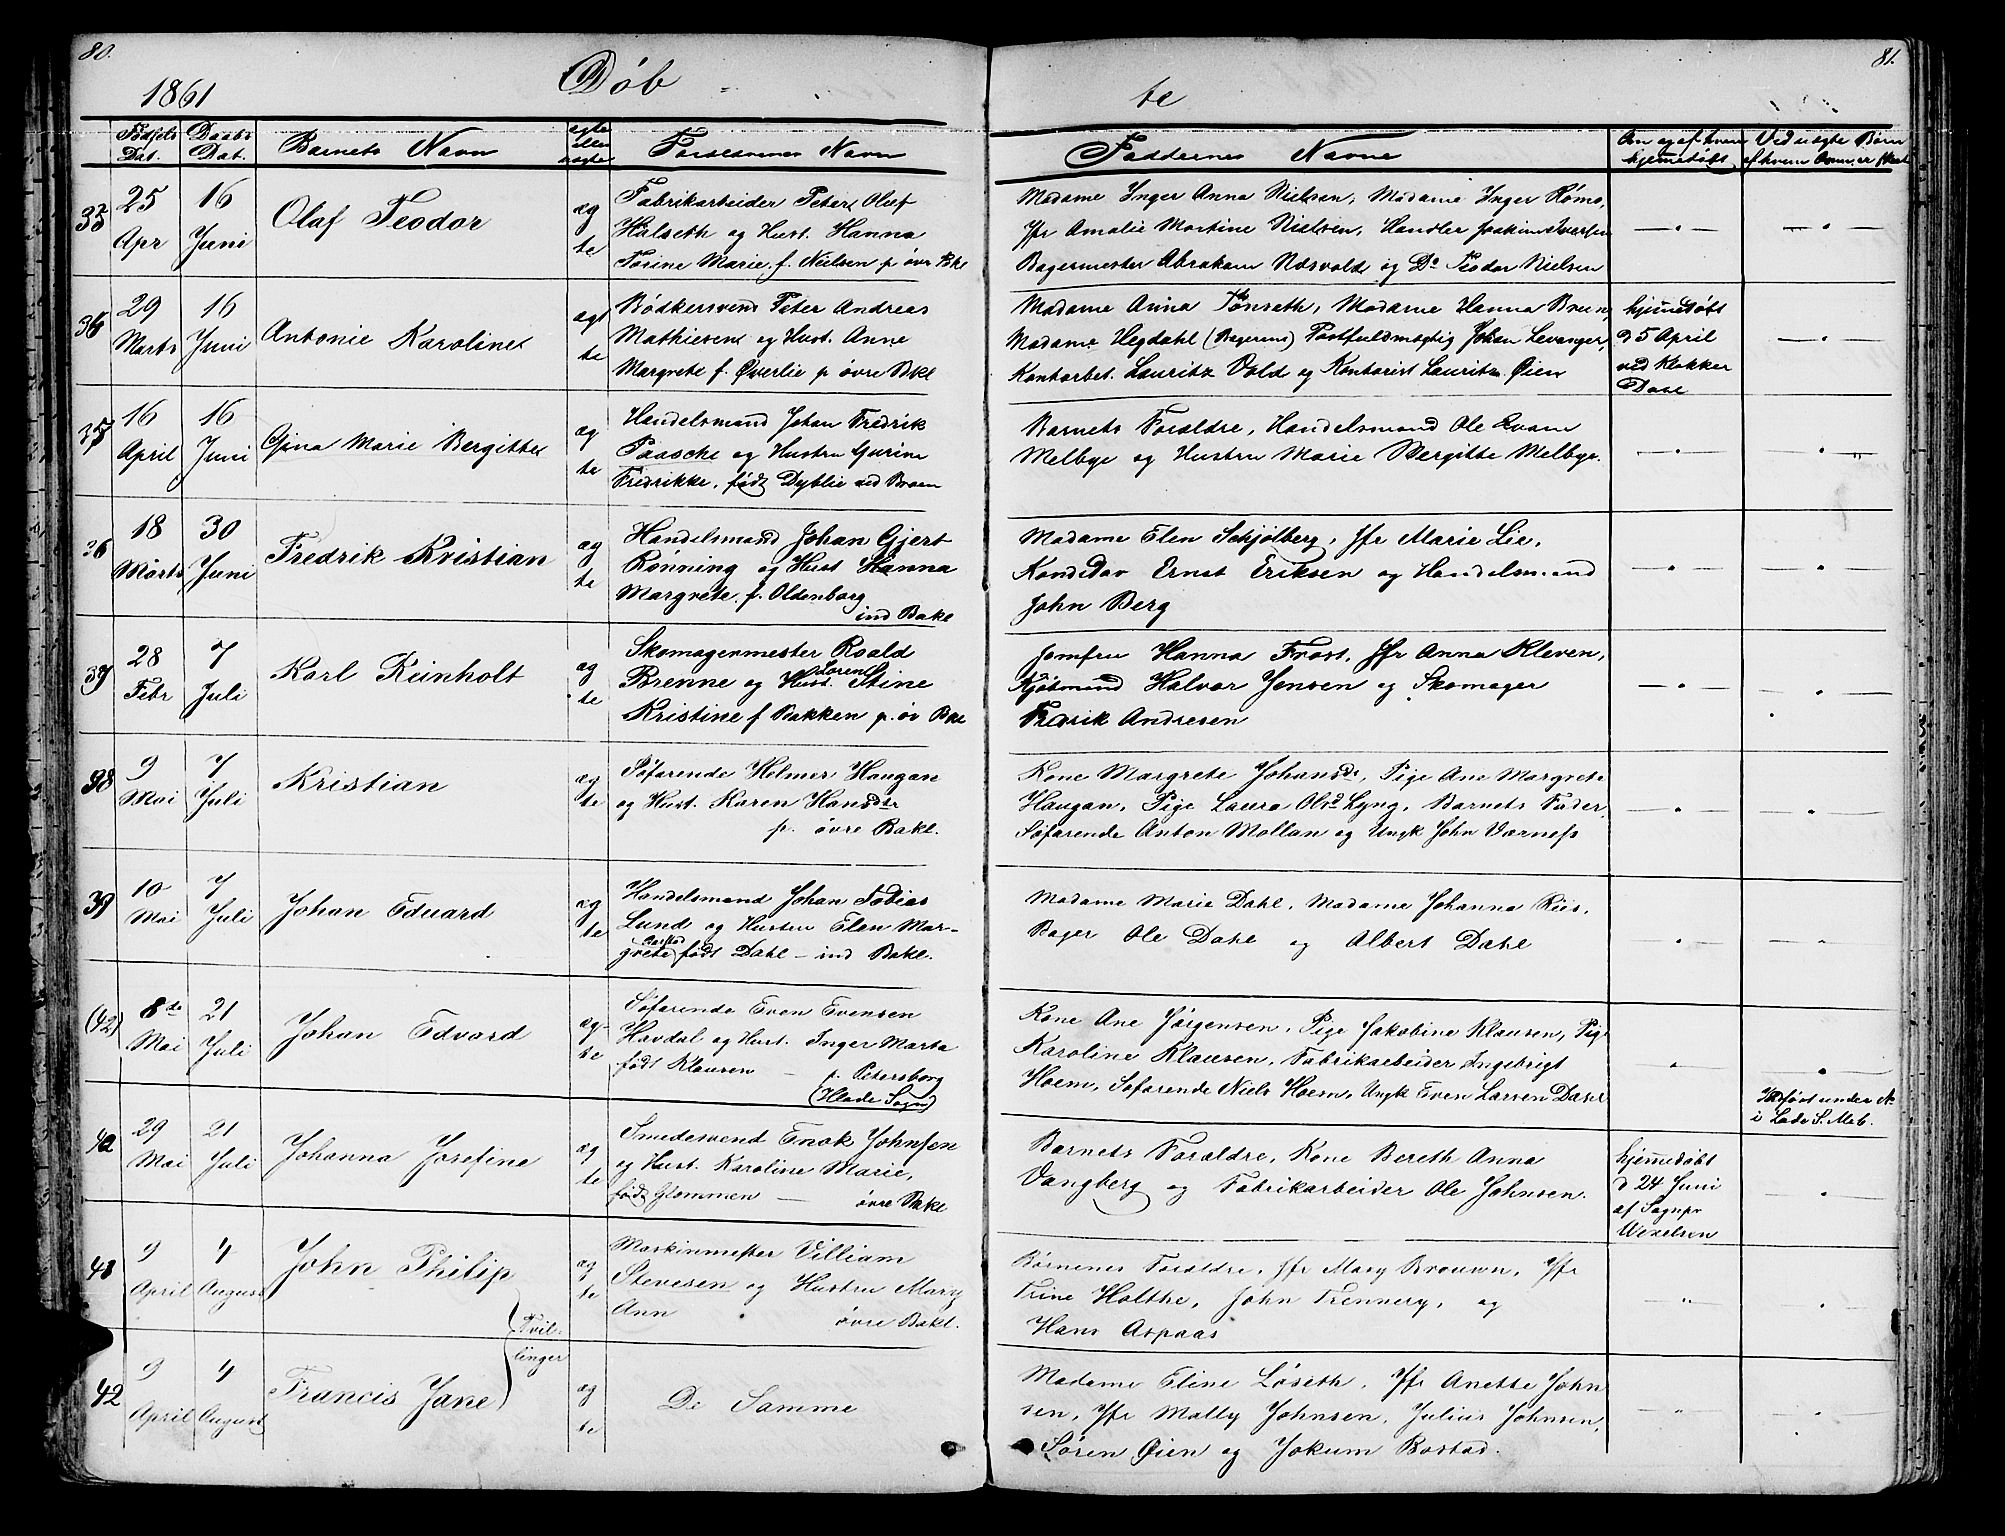 80.
1861
Døb
Fødsels Dat.
Daabs Dat.
Barnets Navn
ægte eller uægte
Forældrenes Navn
33
25 Apr
16 Juni
Olaf Teodor
ægte
Fabrikarbeider Peter Oluf
Halseth og Hust. Hanna
Torine Marie f. Nielsen p øvr Bkl
36
29 Marts
16 Juni
Antonie Karoline
ægte
Bødkersvend Peter Andreas
Mathiesen og Hust. Anne
Margrete f. Øverlie p. øvre Bkl
35
16 April
16 Juni
Gina Marie Bergitte
ægte
Handelsmand Johan Fredrik
Paasche og Hustru Gurine
Fredrikke, født Dyblie ved Broen
36
18 Marts
30 Juni
Fredrik Kristian
ægte
Handelsmand Johan Gjert
Rønning og Hust Hanna
Margrete f. Oldenborg
ind Bakl
37
28 Febr
7 Juli
Karl Reinholt
ægte
Skomagermester Roald
Brenne og Hust. Lorens Stine
Kristine f Bakken p. øv Bkl
38
9 Mai
7 Juli
Kristian
ægte
Søfarende Helmer Haugan
og Hust. Karen Hansdtr
p. øvre Bakl.
39
10 Mai
7 Juli
Johan Edvard
ægte
Handelsmand Johan Tobias
Lund og Hustru Elen Mar-
grete født Dahl – ind Bakl.
(42)
8de Mai
21 Juli
Johan Edvard
ægte
Søfarende Even Evensen
Havdal og Hust. Inger Marta
født Klausen – p. Petersborg
(Hlade Sogn)
40
29 Mai
21 Juli
Johanna Josefine
ægte
Smedesvend Enok Johnsen
og Hust. Karoline Marie,
født Glommen – øvre Bakl
41
9 April
4 August
John Philip
Tvillinger
ægte
Maskinmester Villiam
Stevesen og Hustru Mary
Ann
øvre Bakl.
42
9 April
4 August
Francis Jane
ægte
De Samme
81.
te
Faddernes Navne
Om og af hvem hjemmedøbt
Ved uægte Børn
Madame Inger Anna Nielsen, Madame Inger Rømo,
Jfr Amalie Martine Nielsen, Handler Joakim Iversen
Bagermester Abraham Næsvold og Do Teodor Nielsen
Madame Anna Tønseth, Madame Hanna Bruun,
Madame Hegdahl (Bagerens) Postfuldmægtig Johan Levanger,
Kontorbet. Lauritz Vold og Kontorist Lauritz Øien
hjemmedøbt
d 5 April
ved Klokker
Dahl
Barnets Forældre, Handelsmand Ole Evam
Melbye og Hustru Marie Bergitte Melbye.
Madame Elen Schjølberg, Jfr Marie Lie,
Kandidav Ernst Eriksen og Handelsmand
John Berg
Jomfru Hanna Frost, Jfr Anna Kleven,
Kjøbmand Halvor Jensen og Skomager
Fredrik Andresen
Kone Margrete Johansdr, Pige Ane Margrete
Haugan, Pige Laura Olsd Lyng, Barnets Fader,
Søfarende Anton Mollan og Ungk John Værness
Madame Marie Dahl, Madame Johanna Riis,
Bager Ole Dahl og Albert Dahl
Kone Ane Jørgensen, Pige Jakobine Klausen, Pige
Karoline Klausen, Fabrikarbeider Ingebrigt
Hoem, Søfarende Niels Hoem, Ungk Even Larsen Dahl
Indført under No
i Lade S. Meb.
Barnets Forældre, Kone Bereth Anna
Vangberg og Fabrikarbeider Ole Johnsen.
hjemmedøbt
d 24 Juni
af Sognpr
Wexelsen
Børnenes Forældre, Jfr Mary Brouwn, Jfr
Trine Holthe, John Trennery, og
Hans Aspaas
Madame Eline Løseth, Jfr Anette John
sen, Jfr Mally Johnsen, Julius Johnsen,
Søren Øien og Jokum Bostad.